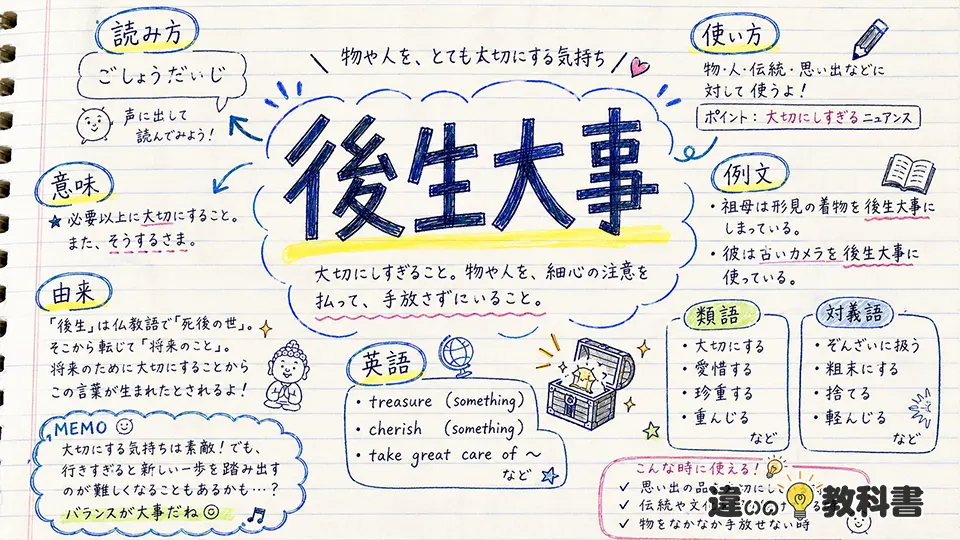 読み方
ごしょうだいじ
声に出して
読んでみよう!
物や人を、とても大切にする気持ち
後生大事
大切にしすぎること。物や人を、細心の注意を
払って、手放さずにいること。
使い方
物・人・伝統・思い出などに
対して使うよ!
ポイント:大切にしすぎるニュアンス
意味
★必要以上に大切にすること。
また、そうするさま。
例文
・祖母は形見の着物を後生大事に
しまっている。
・彼は古いカメラを後生大事に
使っている。
由来
「後生」は仏教語で「死後の世」。
そこから転じて「将来のこと」。
将来のために大切にすることから
この言葉が生まれたとされるよ!
英語
・treasure (something)
・cherish (something)
・take great care of ~
など
類語
・大切にする
・愛惜する
・珍重する
・重んじる
など
対義語
・ぞんざいに扱う
・粗末にする
・捨てる
・軽んじる
など
MEMO
大切にする気持ちは素敵!でも、
行きすぎると新しい一歩を踏み出す
のが難しくなることもあるかも…?
バランスが大事だね
こんな時に使える!
✓ 思い出の品
✓ 伝統や文
✓ 物をなかなか手放せない時
違いの教科書